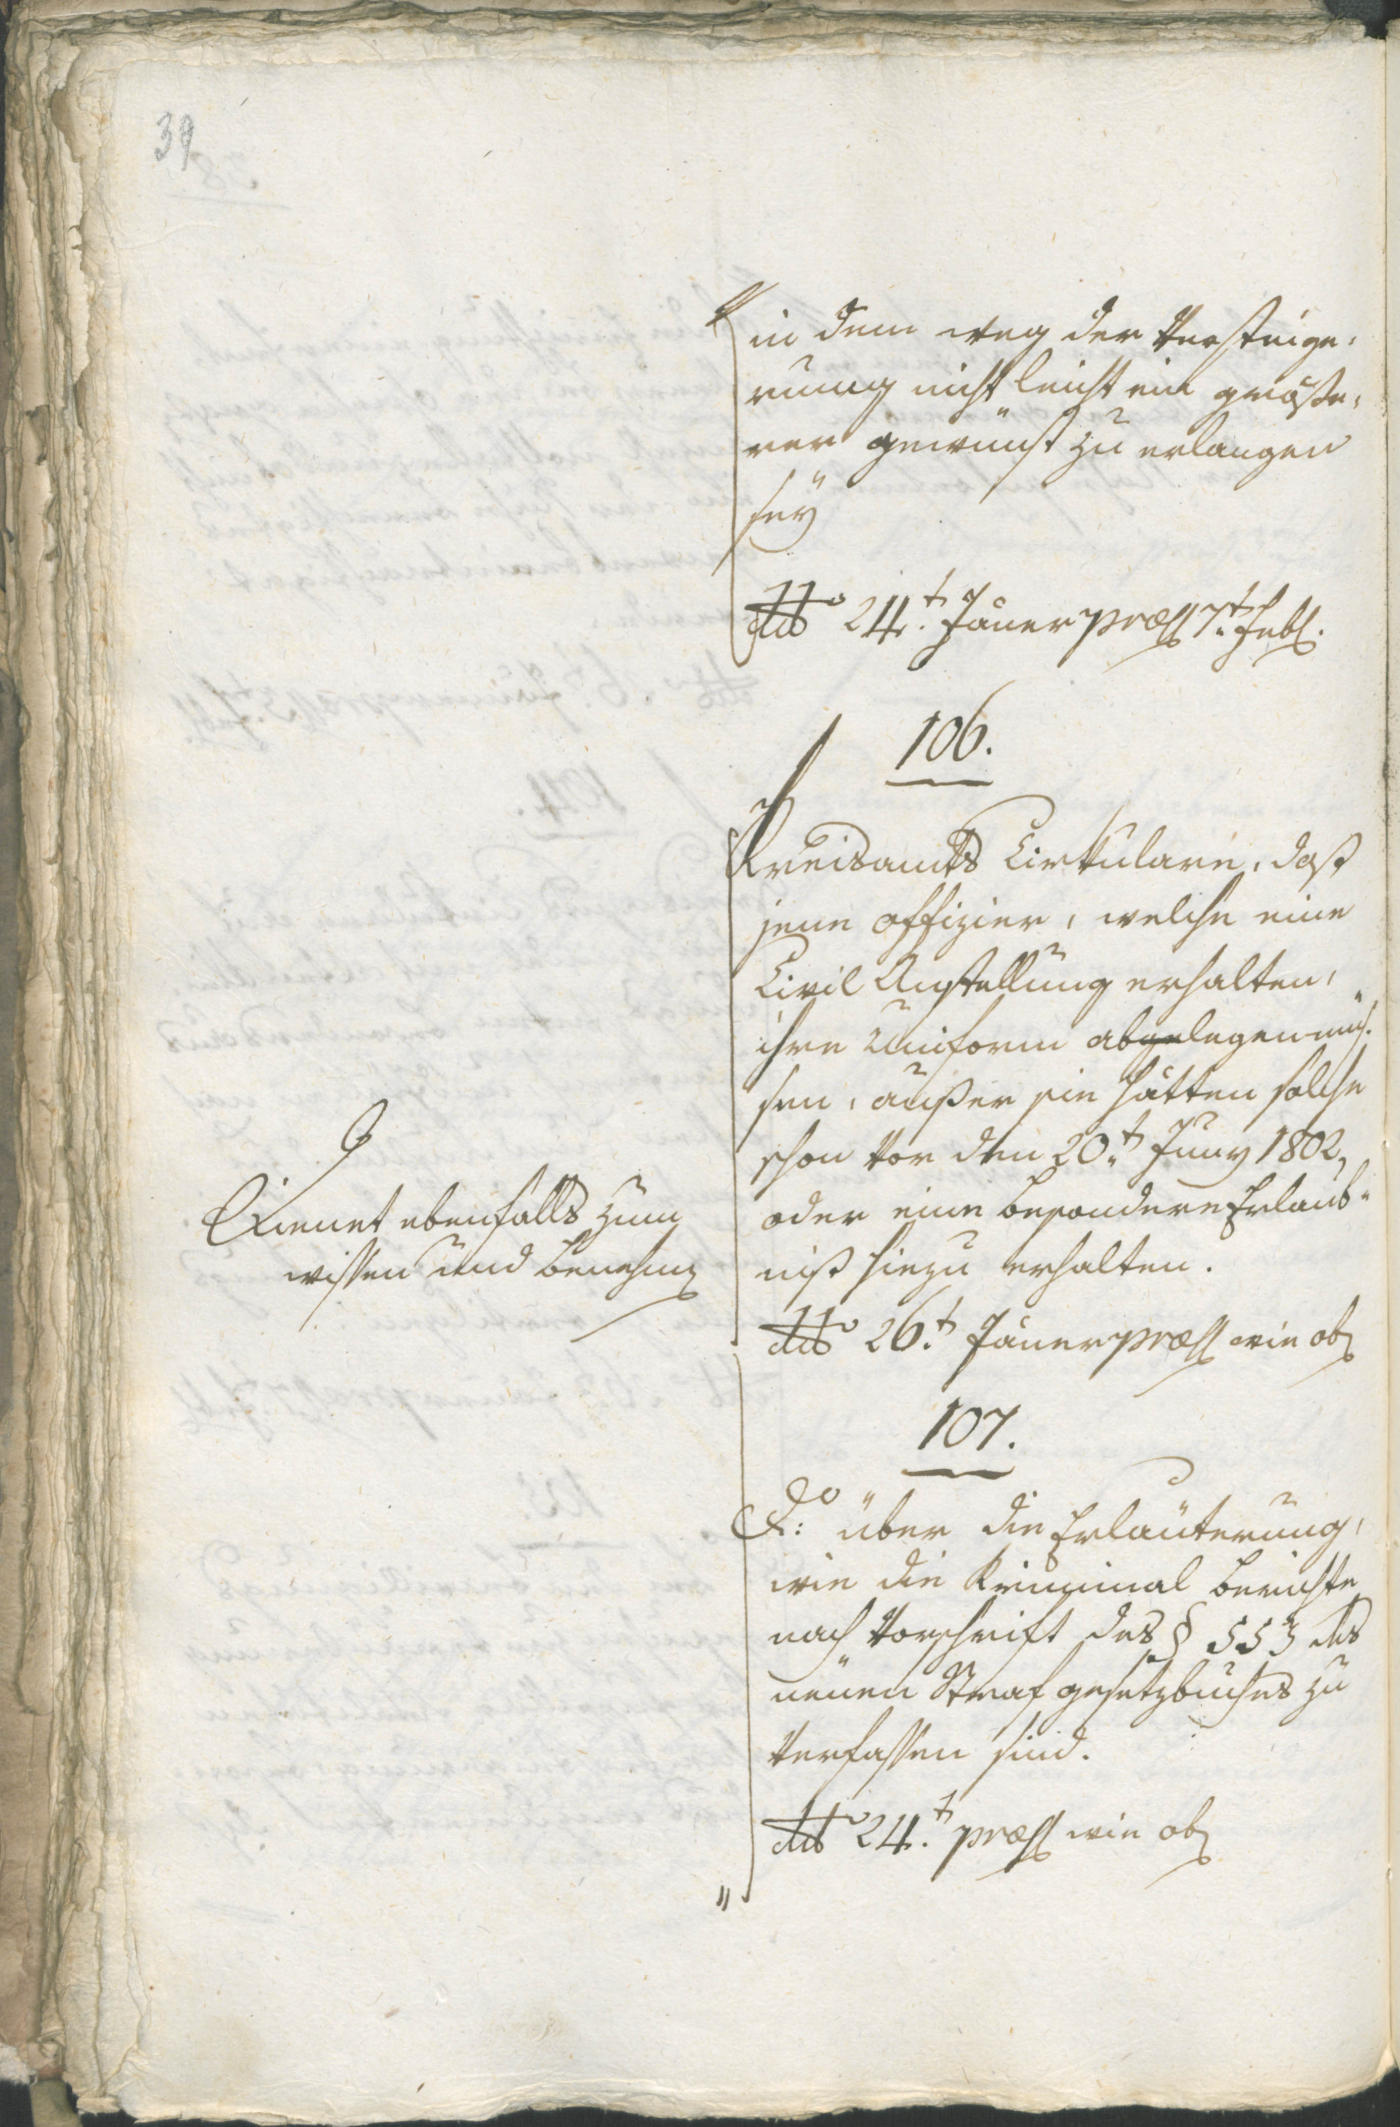 39
in dem weg der Versteige,
rung nicht leicht ein größe,
rer gewünst zu erlangen
seÿ
ddto 24.t Jäner præs 7.t Feb.
106.
Kreisamts Cirkulare, daß
jene offizier, welche eine
Civil Anstellung erhalten,
ihre Uniform abgelegen müs,
sen, außer sie hätten solche
schon vor den 20.t Juny 1802,
oder eine besondere Erlaub,
niß hiezu erhalten.
ddto 26.t Jäner præs wie ob
Dienet ebenfalls zum
wissen und benehmen
107.
do: über die Erläuterung,
wie die Kriminal berichte
nach Vorschrift des § 553 des
neuen Strafgesetzbuches zu
verfassen sind.
ddto 24.t præs wie ob